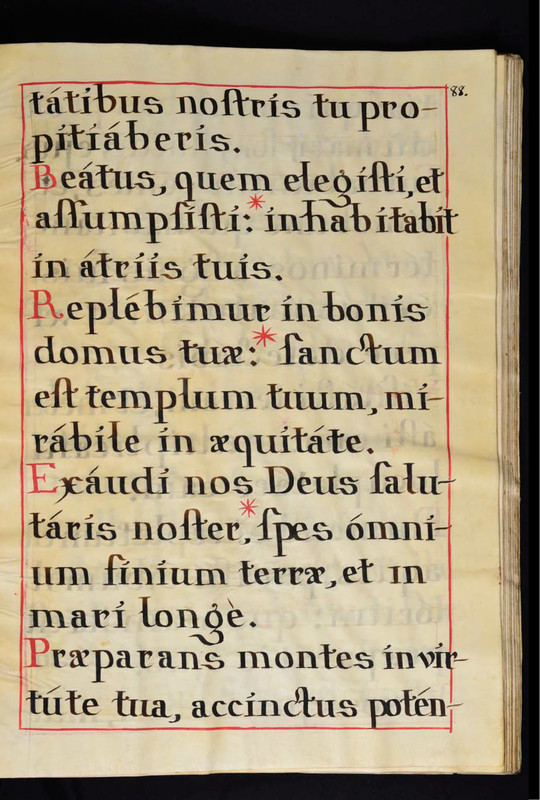 88.
tátibus noſtris tu pro-
pitiáberis.
Beátus, quem elegiſti, et
aſſumpſiſti: * inhabitabit
in átriis tuis.
Replébimur in bonis
domus tuæ: * ſanctum
eſt templum tuum, mi-
rábile in æquitáte.
Exáudi nos Deus ſalu-
táris noſter, * ſpes ómni-
um finium terræ, et in
mari longè.
Præparans montes in vir-
túte tua, accinctus potén-